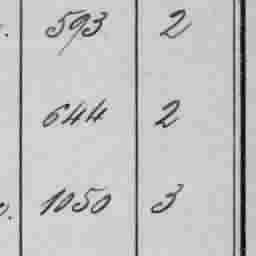 593 2
644 2
1050 3